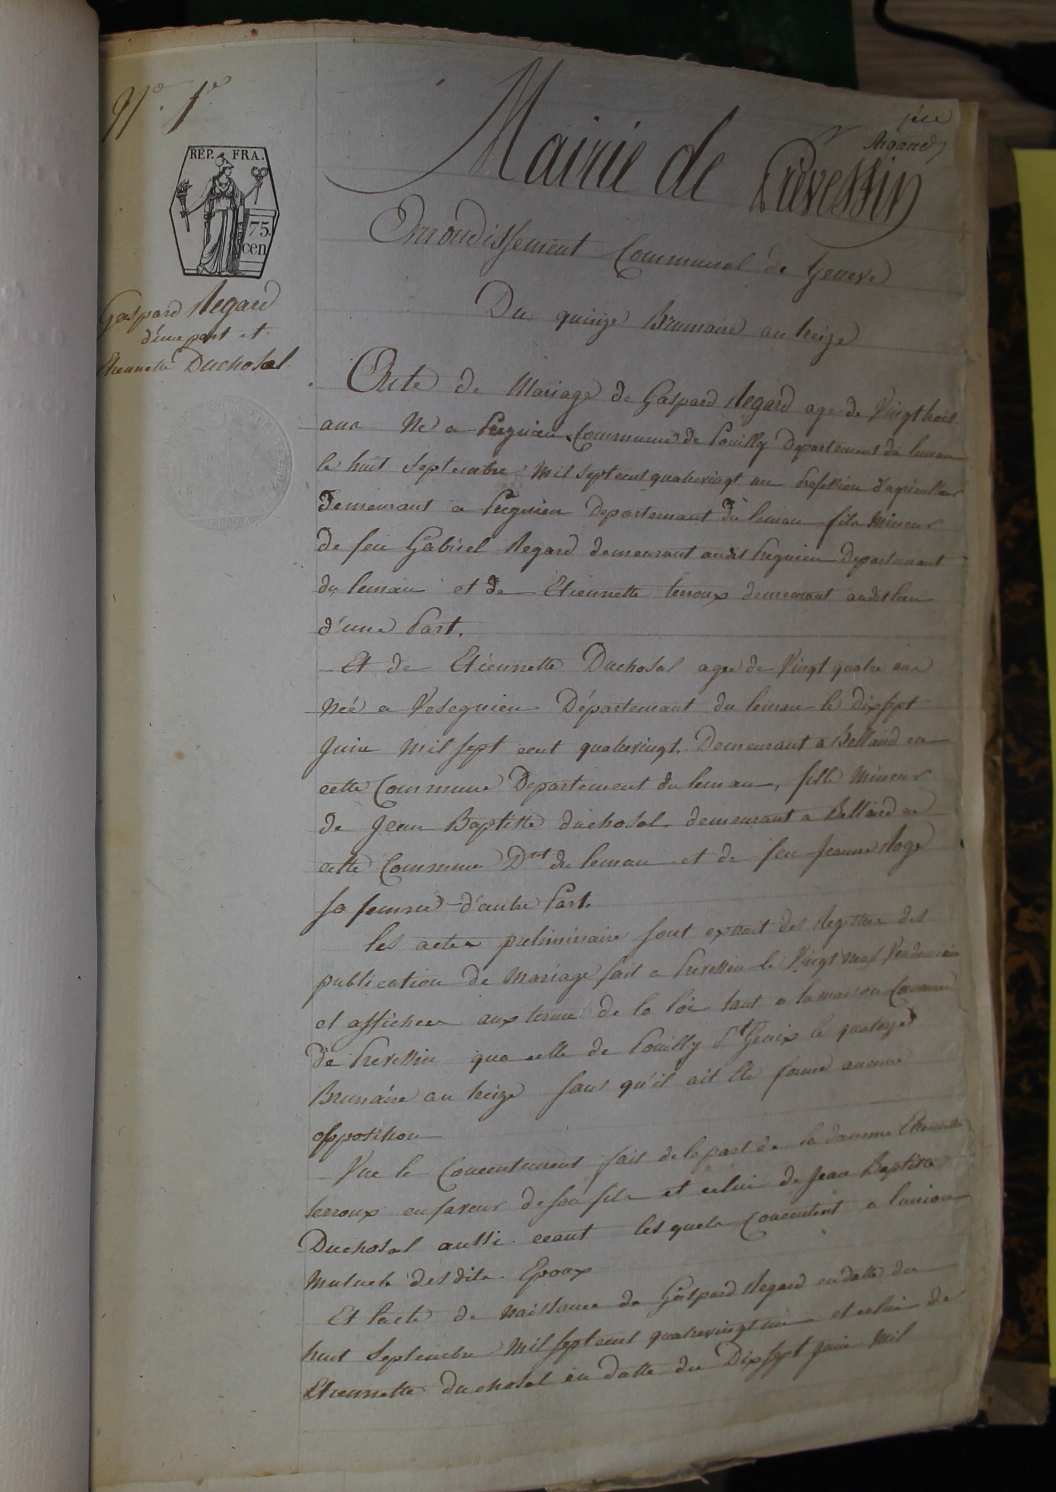 N.° 1.er
REP. FRA.
75.
cen
Gaspard Regard
d'une part et
Etiennette Duchosal
Mairie de Prevessin
Arrondissement Communal de Geneve
Du quinze Brumaire an treize
Acte de Mariage de Gaspard Regard age de Vingt trois
ans Né a Preguien Commune de Pouilly Departement du leman
le huit Septembre Mil sept cent quatrevingt un profession d'agriculteur
demeurant a Preguien Departement du leman fils Mineur
de feu Gabriel Regard demeurant audit Preguien Departement
du leman et de Etiennette terroux demeurant audit lieu
d'une Part.
Et de Etiennette Duchosal agee de Vingt quatre ans
Née a Vesegnieu Département du leman le dix sept
Juin Mil sept cent quatrevingt. Demeurant a Bellaid en
cette Commune Departement du leman, fille Mineur
de Jean Baptiste duchosal demeurant a Bellaid en
cette Commune Dmt du leman et de feu Jeanne Roge
sa femme d'autre Part.
Les actes preliminaire sont extrait des Registre des
publication de Mariage fait a Prevessin le Vingt neuf Vendemiaire
et affichee aux terme de la loi tant a la maison Commune
De Prevessin que celle de Pouilly St Genix le quatorze
Brumaire an treize sans qu'il ait été formé aucune
opposition
Vue le Concentement fait de la part de la damme Etiennette
terroux en faveur de son fils et celui de Jean Baptiste
Duchosal aussi ceant les quels Concentent a l'union
Mutuele des dits Epoux
Et l'acte de naissance de Gaspard Regard en datte du
huit Septembre Mil sept cent quatrevingt un et celui de
Etiennette duchosal en datte du Dix sept juin Mil